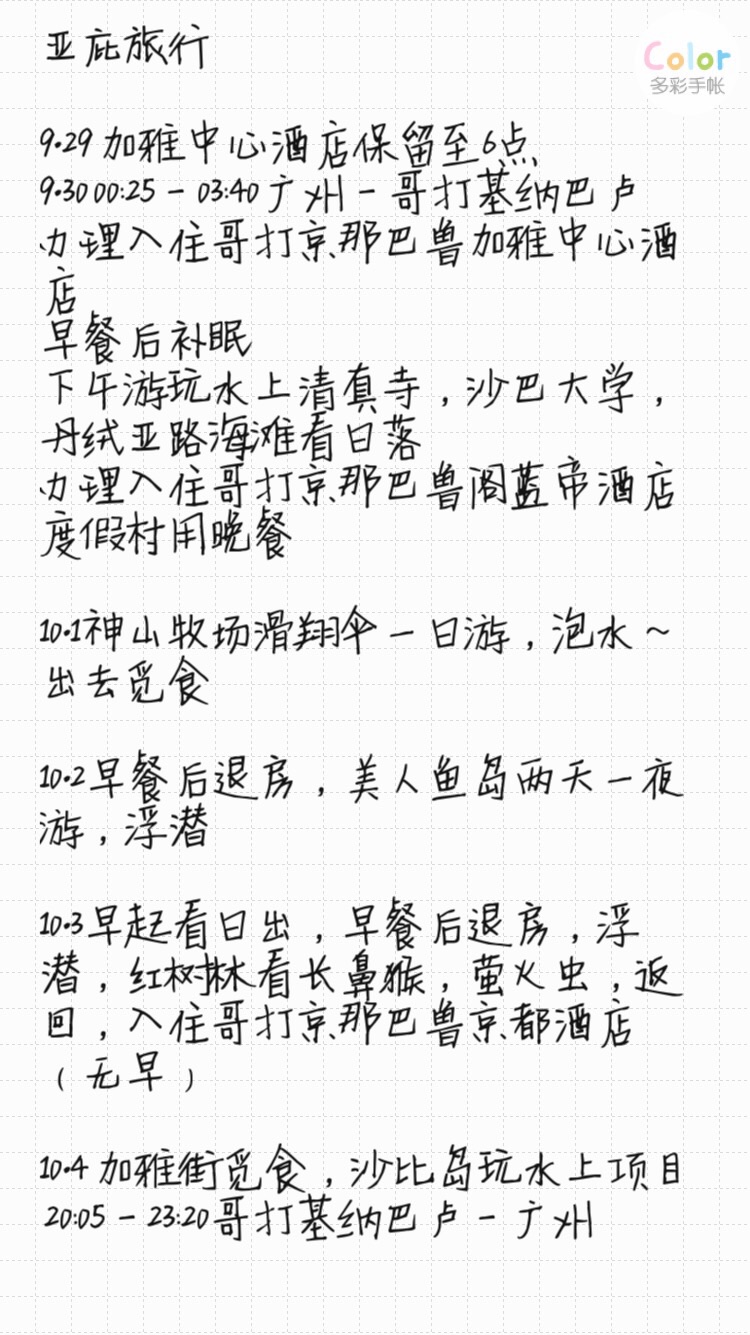 亚庇旅行
Color
多彩手帐
9.29 加雅中心酒店保留至6点
9.30 00:25 - 03:40 广州 - 哥打基纳巴卢
办理入住哥打京那巴鲁加雅中心酒
店
早餐后补眠
下午游玩水上清真寺，沙巴大学，
丹绒亚路海滩看日落
办理入住哥打京那巴鲁阁蓝帝酒店
度假村用晚餐
10.1神山牧场滑翔伞一日游，泡水~
出去觅食
10.2早餐后退房，美人鱼岛两天一夜
游，浮潜
10.3早起看日出，早餐后退房，浮
潜，红树林看长鼻猴，萤火虫，返
回，入住哥打京那巴鲁京都酒店
（无早）
10.4 加雅街觅食，沙比岛玩水上项目
20:05 - 23:20 哥打基纳巴卢 - 广州